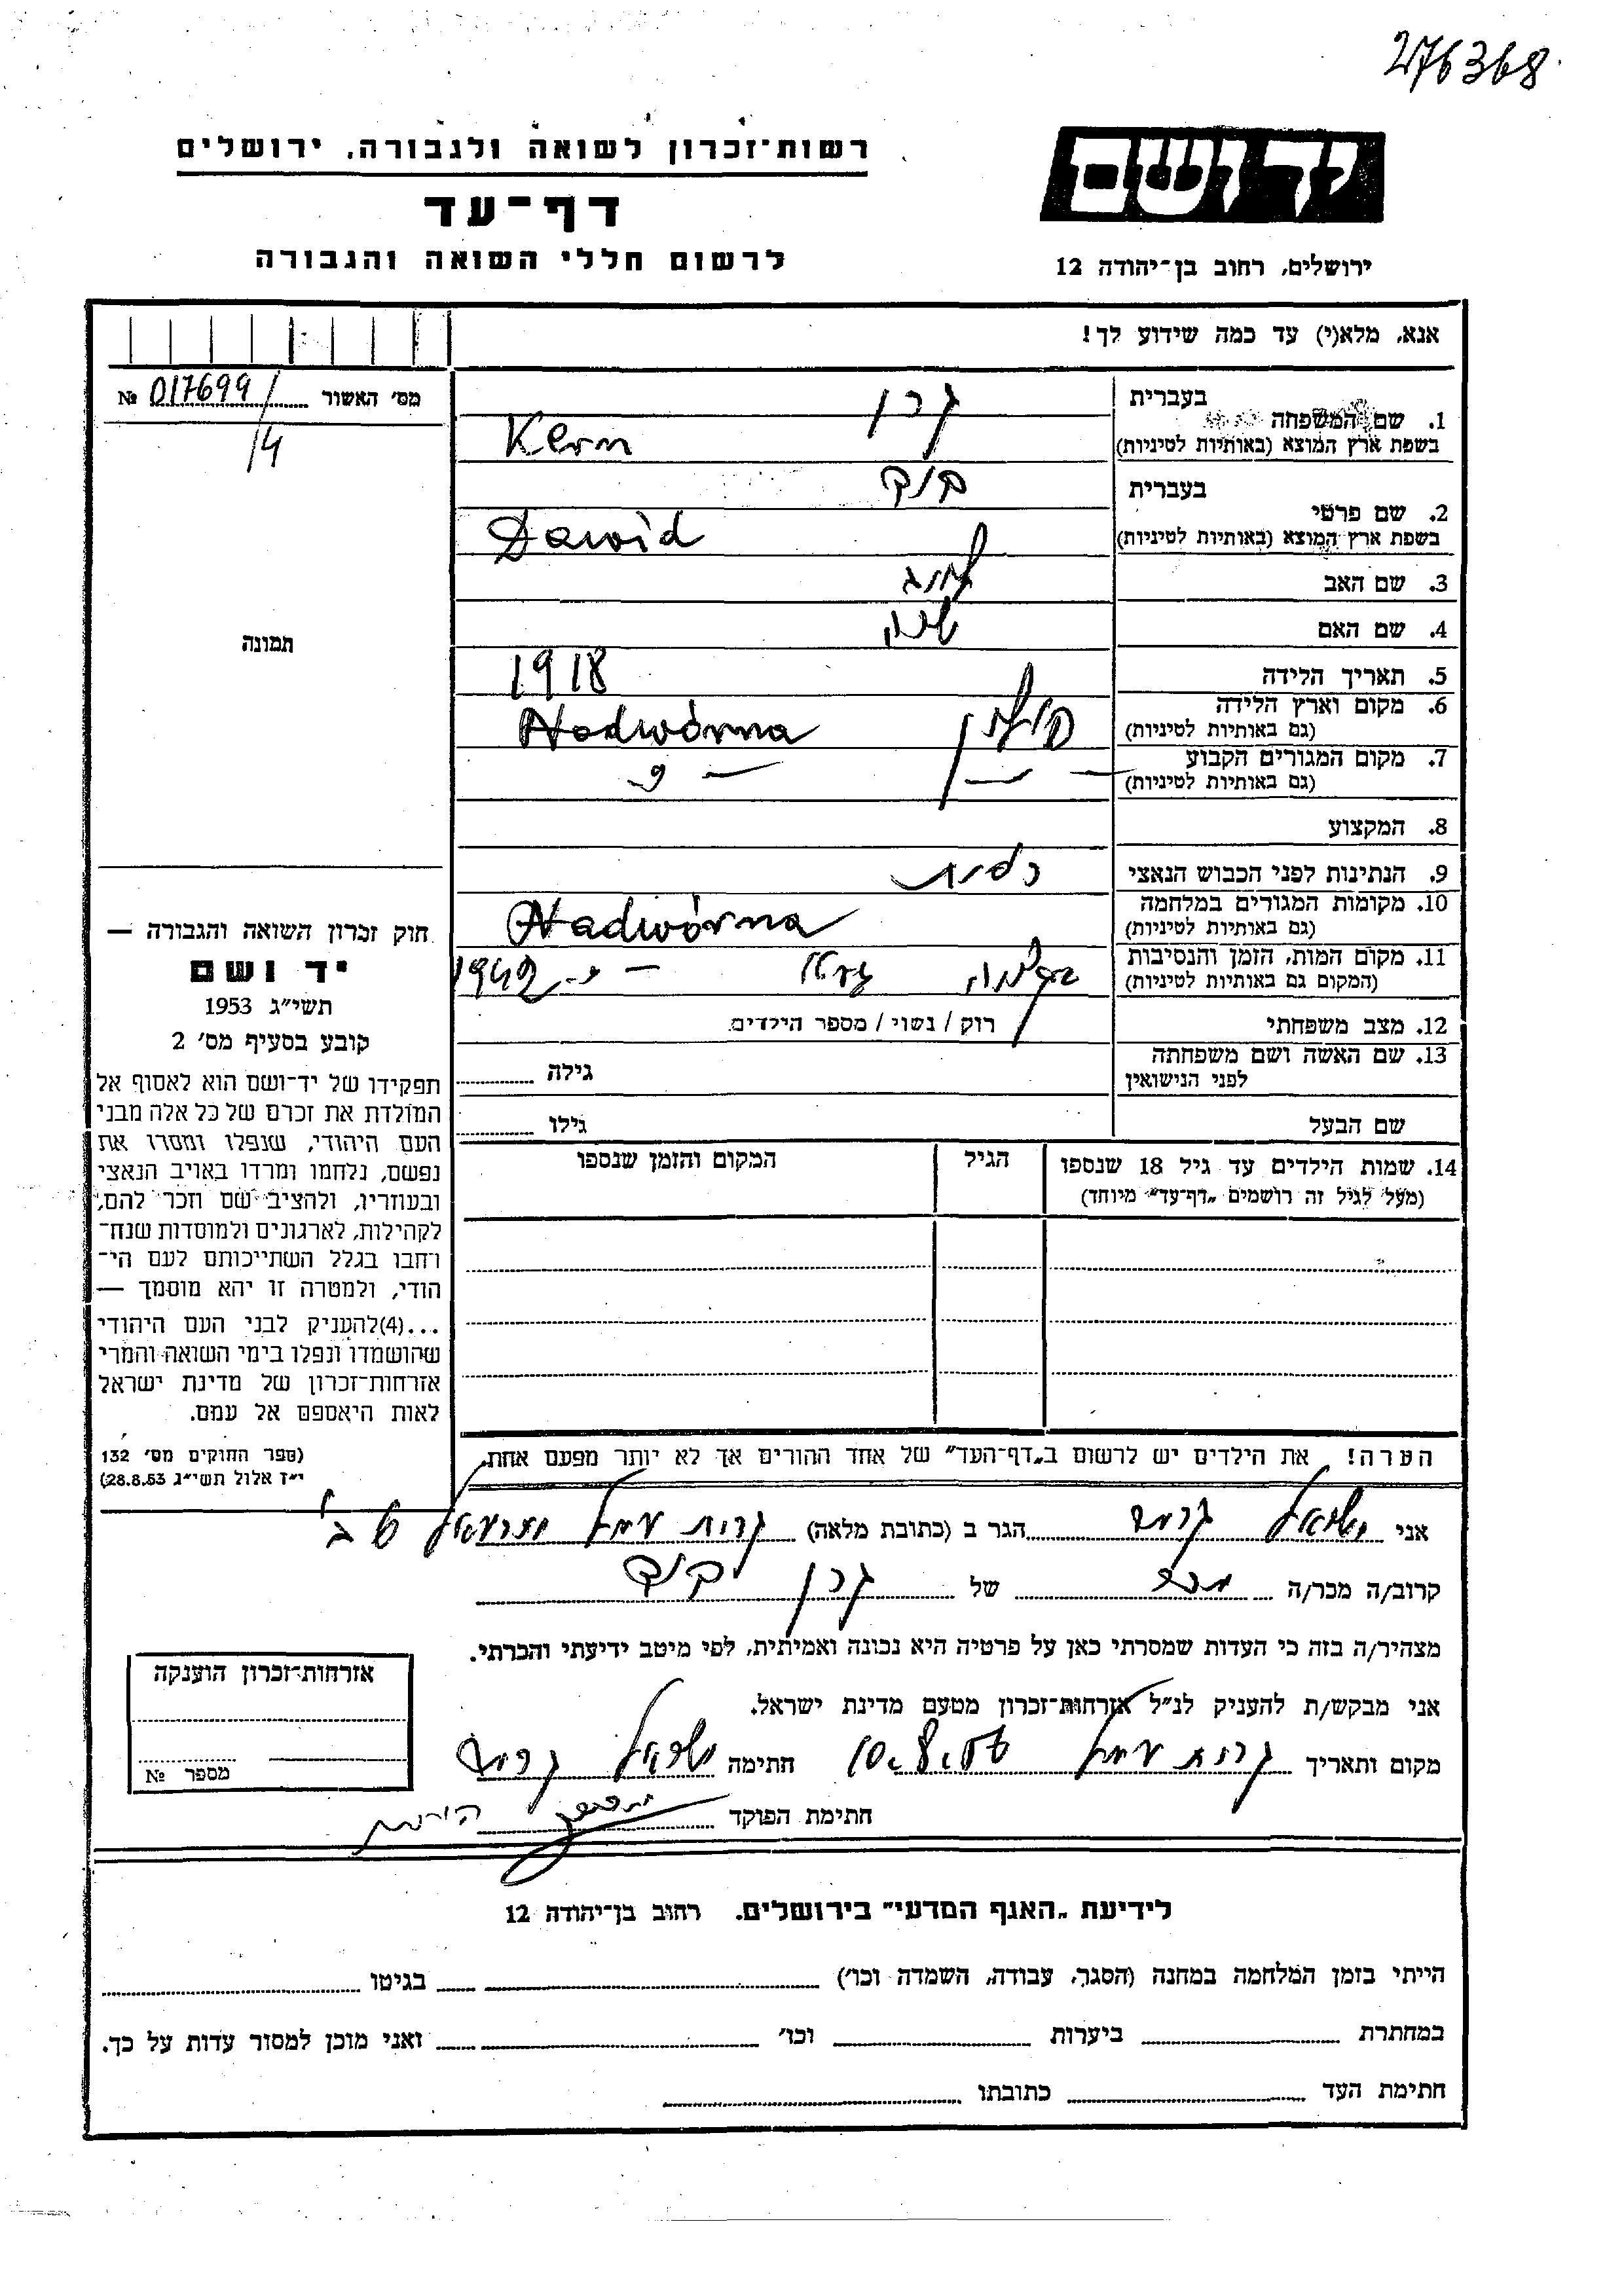 276368
ידושם
רשות־זכרון לשואה ולגבורה, ירושלים
דף־עד
לרשום חללי השואה והגבורה
ירושלים, רחוב בן־יהודה 12
אנא, מלא(י) עד כמה שידוע לך!
מס' האשור № 017699/
14
תמונה
1. שם המשפחה בעברית קרן
בשפת ארץ המוצא (באותיות לטיניות) Kern
2. שם פרטי בעברית דוד
בשפת ארץ המוצא (באותיות לטיניות) Dawid
3. שם האב
4. שם האם
5. תאריך הלידה 1918
6. מקום וארץ הלידה פולין Nadwórna
(גם באותיות לטיניות)
7. מקום המגורים הקבוע — " — — " —
(גם באותיות לטיניות)
8. המקצוע
9. הנתינות לפני הכבוש הנאצי
10. מקומות המגורים במלחמה Nadwórna
(גם באותיות לטיניות)
11. מקום המות, הזמן והנסיבות 1942
(המקום גם באותיות לטיניות)
12. מצב משפחתי רוק / נשוי / מספר הילדים
13. שם האשה ושם משפחתה
לפני הנישואין גילה
שם הבעל גילו
14. שמות הילדים עד גיל 18 שנספו הגיל המקום והזמן שנספו
(מעל לגיל זה רושמים „דף־עד" מיוחד)
הערה! את הילדים יש לרשום ב„דף־העד" של אחד ההורים אך לא יותר מפעם אחת.
חוק זכרון השואה והגבורה —
יד ושם
תשי״ג 1953
קובע בסעיף מס' 2
תפקידו של יד־ושם הוא לאסוף אל
המולדת את זכרם של כל אלה מבני
העם היהודי, שנפלו ומסרו את
נפשם, נלחמו ומרדו באויב הנאצי
ובעוזריו, ולהציב שם וזכר להם,
לקהילות, לארגונים ולמוסדות שנח־
רחבו בגלל השתייכותם לעם הי־
הודי, ולמטרה זו יהא מוסמך —
...(4)להעניק לבני העם היהודי
שהושמדו ונפלו בימי השואה והמרי
אזרחות־זכרון של מדינת ישראל
לאות היאספם אל עמם.
(ספר החוקים מס' 132
י״ז אלול תשי״ג 28.8.53)
אני ישראל הגר ב (כתובת מלאה) קרית עמל
קרוב/ה מכר/ה מכר של קרן דוד
מצהיר/ה בזה כי העדות שמסרתי כאן על פרטיה היא נכונה ואמיתית, לפי מיטב ידיעתי והכרתי.
אני מבקש/ת להעניק לנ״ל אזרחות־זכרון מטעם מדינת ישראל.
מקום ותאריך קרית עמל 10.8.56 חתימה ישראל
חתימת הפוקד
אזרחות־זכרון הוענקה
מספר №
לידיעת „האגף המדעי" בירושלים, רחוב בן־יהודה 12
הייתי בזמן המלחמה במחנה (הסגר, עבודה, השמדה וכו') בגיטו
במחתרת ביערות וכו' ואני מוכן למסור עדות על כך.
חתימת העד כתובתו